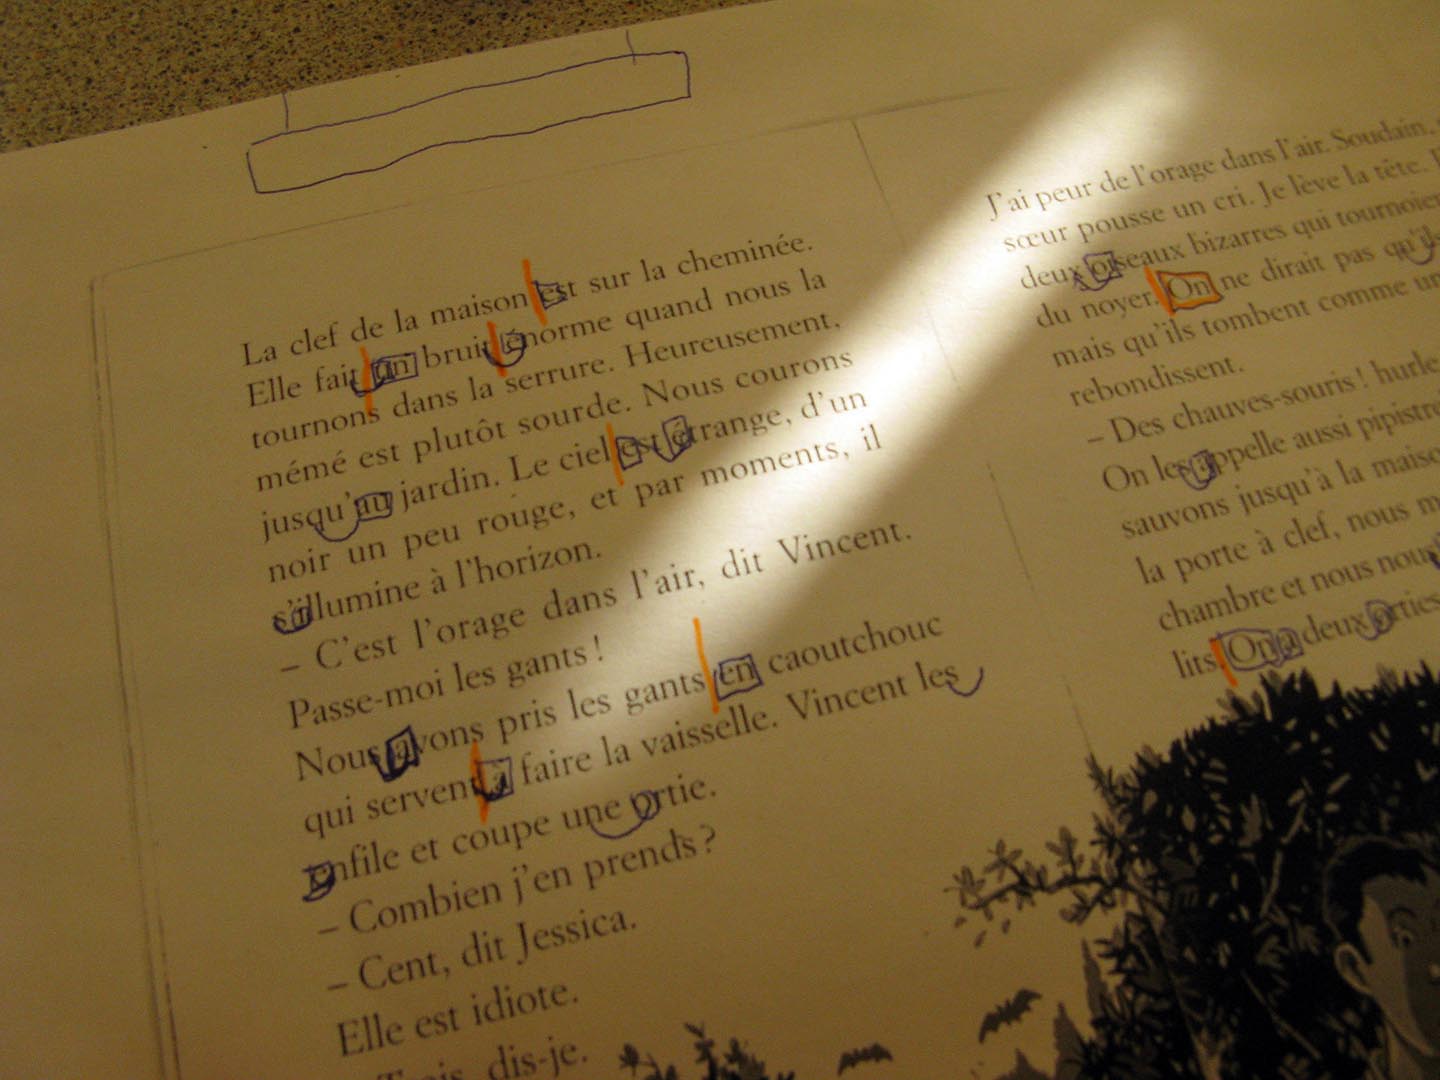 La clef de la maison est sur la cheminée.
Elle fait un bruit énorme quand nous la
tournons dans la serrure. Heureusement,
mémé est plutôt sourde. Nous courons
jusqu'au jardin. Le ciel est étrange, d'un
noir un peu rouge, et par moments, il
s'illumine à l'horizon.
– C'est l'orage dans l'air, dit Vincent.
Passe-moi les gants !
Nous avons pris les gants en caoutchouc
qui servent à faire la vaisselle. Vincent les
enfile et coupe une ortie.
– Combien j'en prends ?
– Cent, dit Jessica.
Elle est idiote.
– Trois, dis-je.
J'ai peur de l'orage dans l'air. Soudain,
sœur pousse un cri. Je lève la tête.
deux oiseaux bizarres qui tournoient
du noyer. On ne dirait pas qu'ils
mais qu'ils tombent comme
rebondissent.
– Des chauves-souris ! hurle
On les appelle aussi
sauvons jusqu'à la maison
la porte à clef, nous
chambre et nous nous
lits. On a deux orties